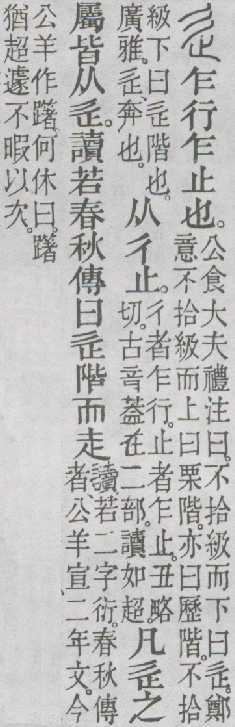 辵乍行乍止也。公食大夫禮注曰。不拾級而下曰辵。鄭
意不拾級而上曰栗階。亦曰歷階。不拾
級下曰辵階也。
廣雅。辵、奔也。
从彳止。彳者乍行。止者乍止。丑略
切。古音葢在二部。讀如超。
凡辵之
屬皆从辵。讀若春秋傳曰辵階而走讀若二字衍。春秋傳
者、公羊宣、二年文。今
公羊作躇。何休曰。躇
猶超遽不暇以次。